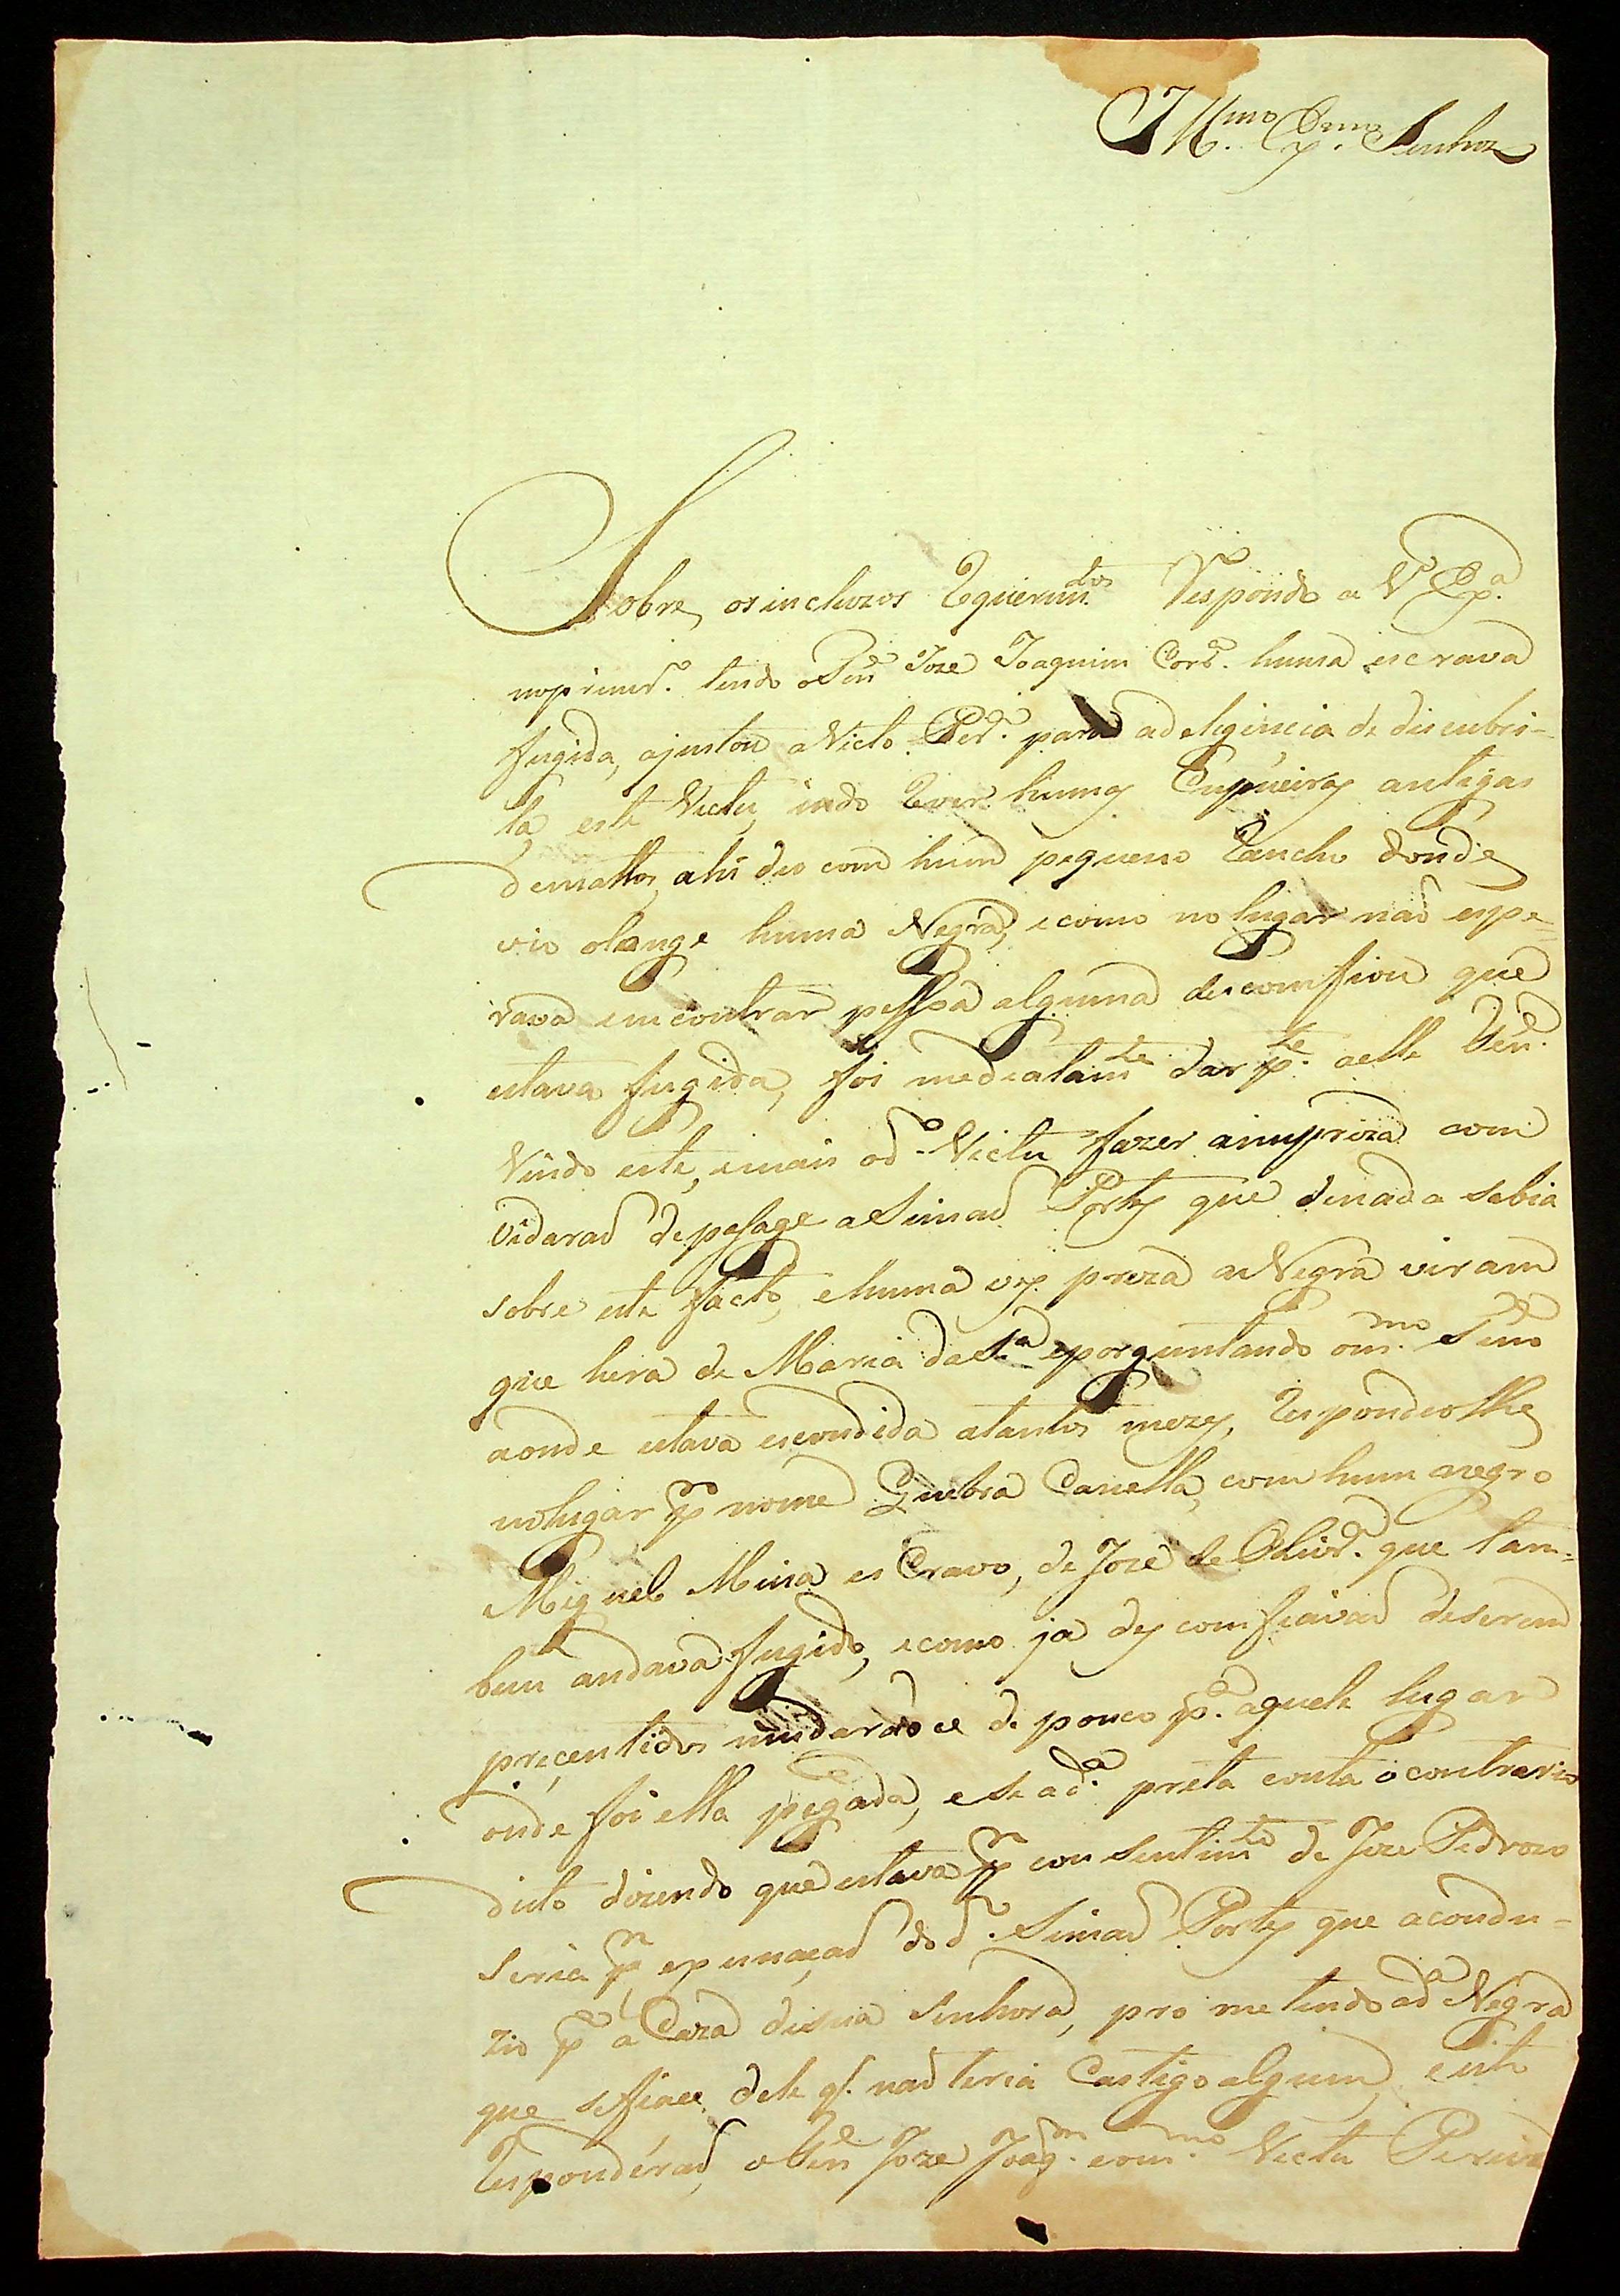 Ill.mo Ex.mo Senhor
Sobre os incluzos Requerim.tos Respondo a V.ª Ex.ª
no primr.º tendo o Ten.e Joze Joaquim Cord.º huma escrava
fugida, ajustou a Victo. Per.ª para a deligincia de discubri-
la, este Victu, indo Rever humas Cupueiras antigas
demattos, ahi deo com hum pequeno Rancho donde
vio olonge huma Negra, e como no lugar naõ espe-
rava emcontrar peſsoa alguma descomfiou que
estava fugida, foi mediatam.te dar p.te aelle Ten.e
Vindo este, e mais o d.º Victu fazer a impreza com
vidaraõ depaſsage a Simaõ Portes que denada sabia
sobre este facto, e huma vez preza a Negra viram
que hera de Maria da S.ª e porguntando o m.mo Ten.e
aonde estava escondida a tantos mezes, Respondeo lhe
no lugar p.r nome Quebra Canella, com hum negro
Miguel Mina esCravo, de Joze de Olivr.ª que tam-
bem andava fugido, e como ja descomfiavaõ deserem
preçentidos mudaraõ ce de pouco p.ª aquele lugar
onde foi ella pegada, e se a d.ª preta conta o contrario
disto dizendo que estava p.r consentim.to de Joze Pedrozo
seria p.r do d.º Simaõ Portes que a condu-
zio p.ª a Caza desua Senhora, pro metendo a d.ª Negra
que se fiace dele q. naõ teria Castigo algum, e isto
Responderaõ, o Ten.e Joze Joaq.m e o m.mo Victu Pereira